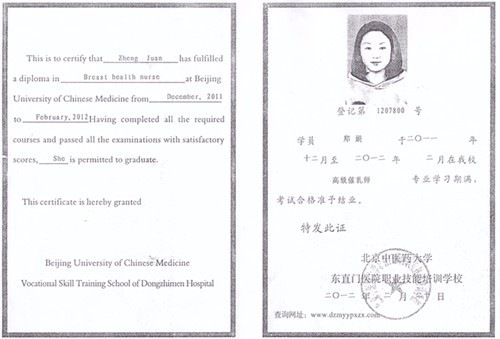 This is to certify that Zheng Juan has fulfilled
a diploma in Breast health nurse at Beijing
University of Chinese Medicine from December, 2011
to February,2012 Having completed all the required
courses and passed all the examinations with satisfactory
scores, She is permitted to graduate.
This certificate is hereby granted
Beijing University of Chinese Medicine
Vocational Skill Training School of Dongzhimen Hospital
登记第 1207800 号
学员 郑娟 于二〇一一年
十二月至 二〇一二年 二月在我校
高级催乳师 专业学习期满,
考试合格准予结业。
特发此证
北京中医药大学
东直门医院职业技能培训学校
二〇一二年 二月 十日
查询网址: www.dzmyypxzx.com